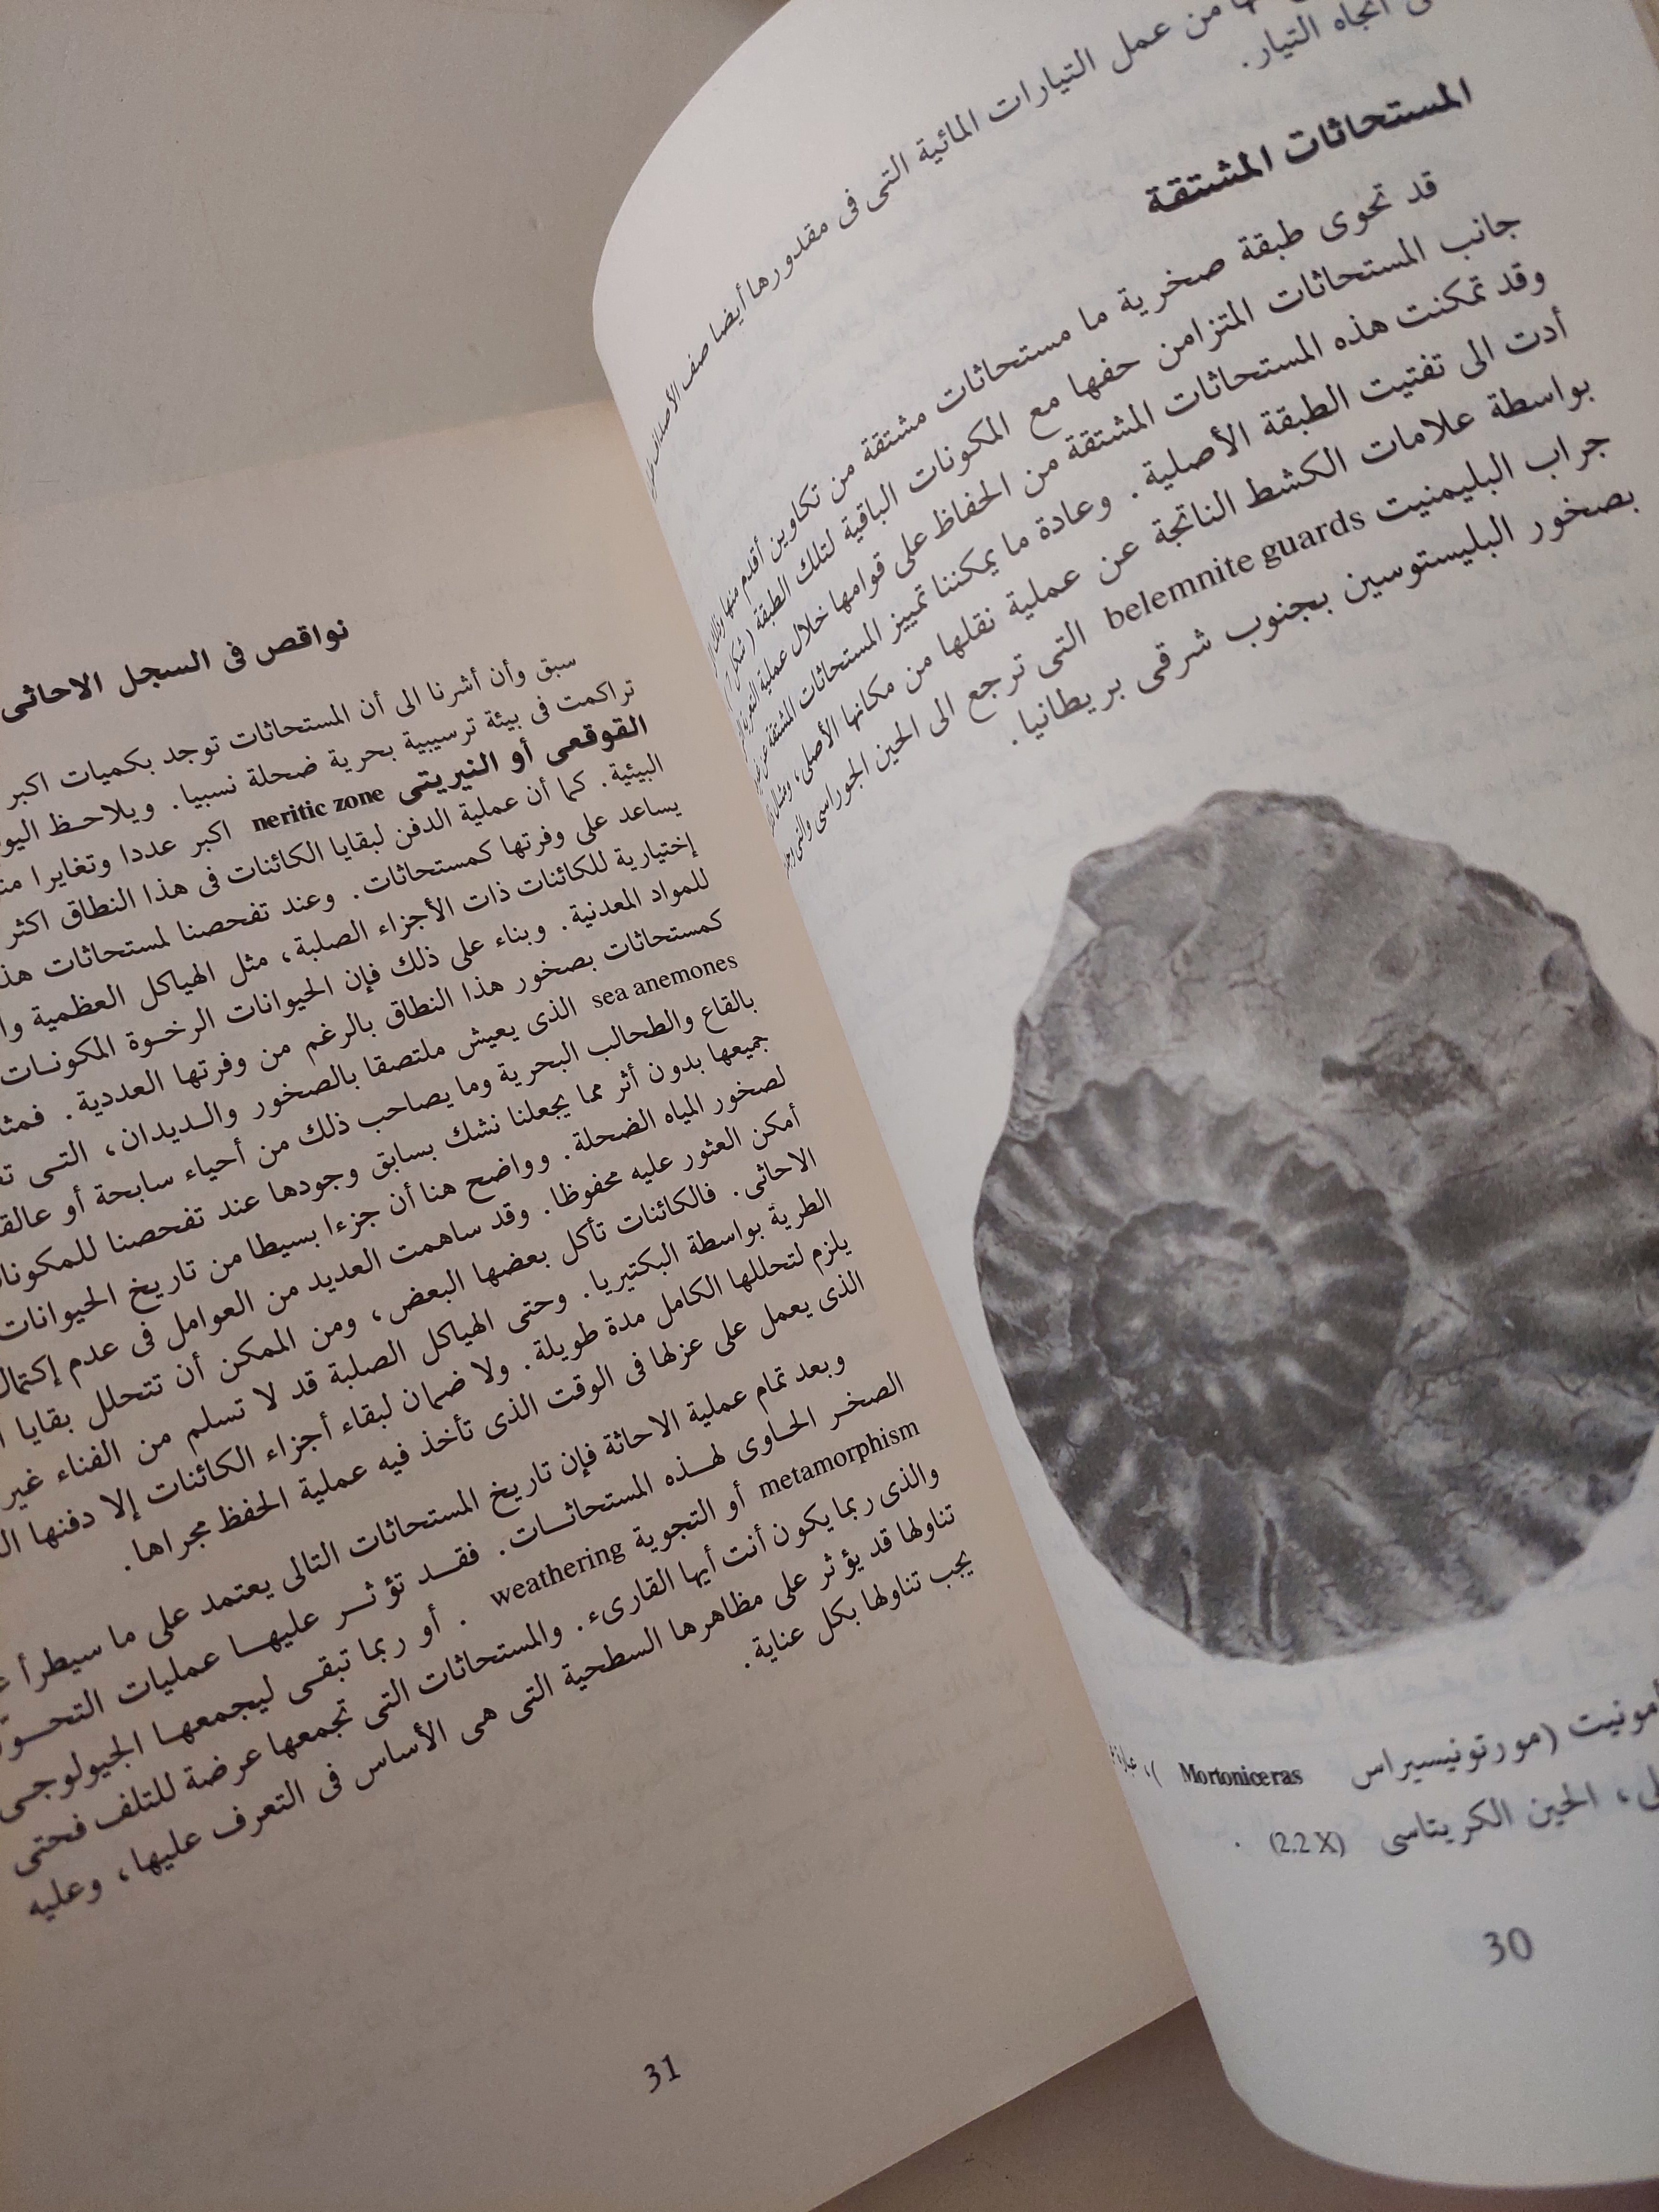 من عمل التيارات المائية التى فى مقدورها أيضا صف الأصداف
اتجاه التيار.
المستحاثات المشتقة
قد تحوى طبقة صخرية ما مستحاثات مشتقة من تكاوين أقدم منها
جانب المستحاثات المتزامن حفها مع المكونات الباقية لتلك الطبقة (شكل
وقد تمكنت هذه المستحاثات المشتقة من الحفاظ على قوامها خلال عملية التعرية
أدت الى تفتيت الطبقة الأصلية. وعادة ما يمكننا تمييز المستحاثات المشتقة عن
بواسطة علامات الكشط الناتجة عن عملية نقلها من مكانها الأصلى،
جراب البليمنيت belemnite guards التى ترجع الى الحين الجوراسى والتى
بصخور البليستوسين بجنوب شرقى بريطانيا.
مونيت (مورتونيسيراس Mortoniceras )،
، الحين الكريتاسى (2.2 X) .
30
نواقص فى السجل الاحاثى
سبق وأن أشرنا الى أن المستحاثات توجد بكميات اكبر
تراكمت فى بيئة ترسيبية بحرية ضحلة نسبيا. ويلاحظ
القوقعى أو النيريتى neritic zone اكبر عددا وتغايرا
البيئية. كما أن عملية الدفن لبقايا الكائنات فى هذا النطاق اكثر
يساعد على وفرتها كمستحاثات. وعند تفحصنا لمستحاثات
إختيارية للكائنات ذات الأجزاء الصلبة، مثل الهياكل العظمية
للمواد المعدنية. وبناء على ذلك فإن الحيوانات الرخوة المكونات
كمستحاثات بصخور هذا النطاق بالرغم من وفرتها العددية.
sea anemones الذى يعيش ملتصقا بالصخور والديدان، التى
بالقاع والطحالب البحرية وما يصاحب ذلك من أحياء سابحة أو
جميعها بدون أثر مما يجعلنا نشك بسابق وجودها عند تفحصنا
لصخور المياه الضحلة. وواضح هنا أن جزءا بسيطا من تاريخ الحيوانات
أمكن العثور عليه محفوظا. وقد ساهمت العديد من العوامل فى عدم
الاحاثى. فالكائنات تأكل بعضها البعض، ومن الممكن أن تتحلل بقايا
الطرية بواسطة البكتيريا. وحتى الهياكل الصلبة قد لا تسلم من الفناء غير
يلزم لتحللها الكامل مدة طويلة. ولا ضمان لبقاء أجزاء الكائنات إلا دفنها
الذى يعمل على عزلها فى الوقت الذى تأخذ فيه عملية الحفظ مجراها.
وبعد تمام عملية الاحاثة فإن تاريخ المستحاثات التالى يعتمد على ما سيطرأ
الصخر الحاوى لهذه المستحاثات. فقد تؤثر عليها عمليات
metamorphism أو التجوية weathering . أو ربما تبقى ليجمعها الجيولوجى
والذى ربما يكون أنت أيها القارىء. والمستحاثات التى تجمعها عرضة للتلف فحتى
تناولها قد يؤثر على مظاهرها السطحية التى هى الأساس فى التعرف عليها، وعليه
يجب تناولها بكل عناية.
31